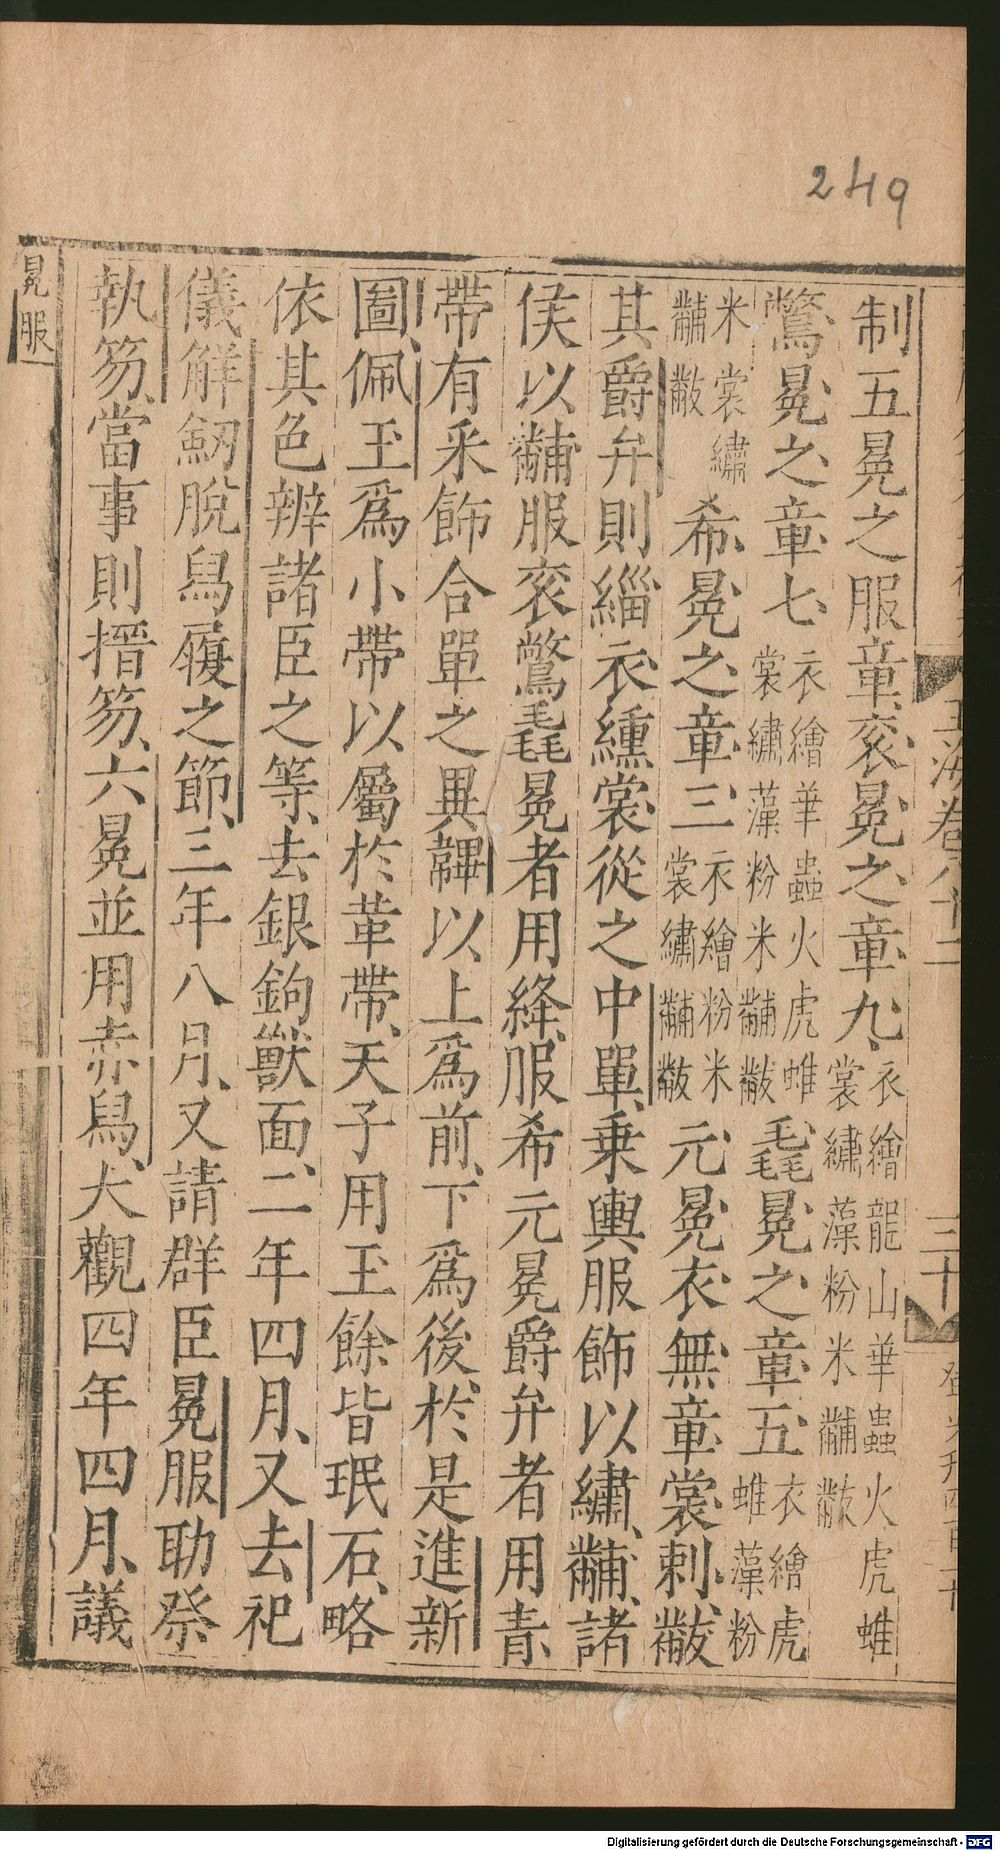 249
玉海卷八十二
三十
制五冕之服章衮冕之章九衣繪龍山華蟲火虎蜼裳繡藻粉米黼黻
鷩冕之章七衣繪華蟲火虎蜼裳繡藻粉米黼黻毳冕之章五衣繪虎蜼藻粉
米裳繡黼黻希冕之章三衣繪粉米裳繡黼黻元冕衣無章裳刺黻
其爵弁則緇衣纁裳從之中單乗輿服飾以繡黼諸
侯以黼服衮鷩毳冕者用絳服希元冕爵弁者用青
帶有采飾合單之異韠以上爲前下爲後於是進新
圖佩玉爲小帶以屬於革帶天子用玉餘皆珉石略
依其色辨諸臣之等去銀鉤獸面二年四月又去祀
儀解劒脫舄履之節三年八月又請群臣冕服助祭
執笏當事則搢笏六冕並用赤舄大觀四年四月議
冕服
Digitalisierung gefördert durch die Deutsche Forschungsgemeinschaft - DFG